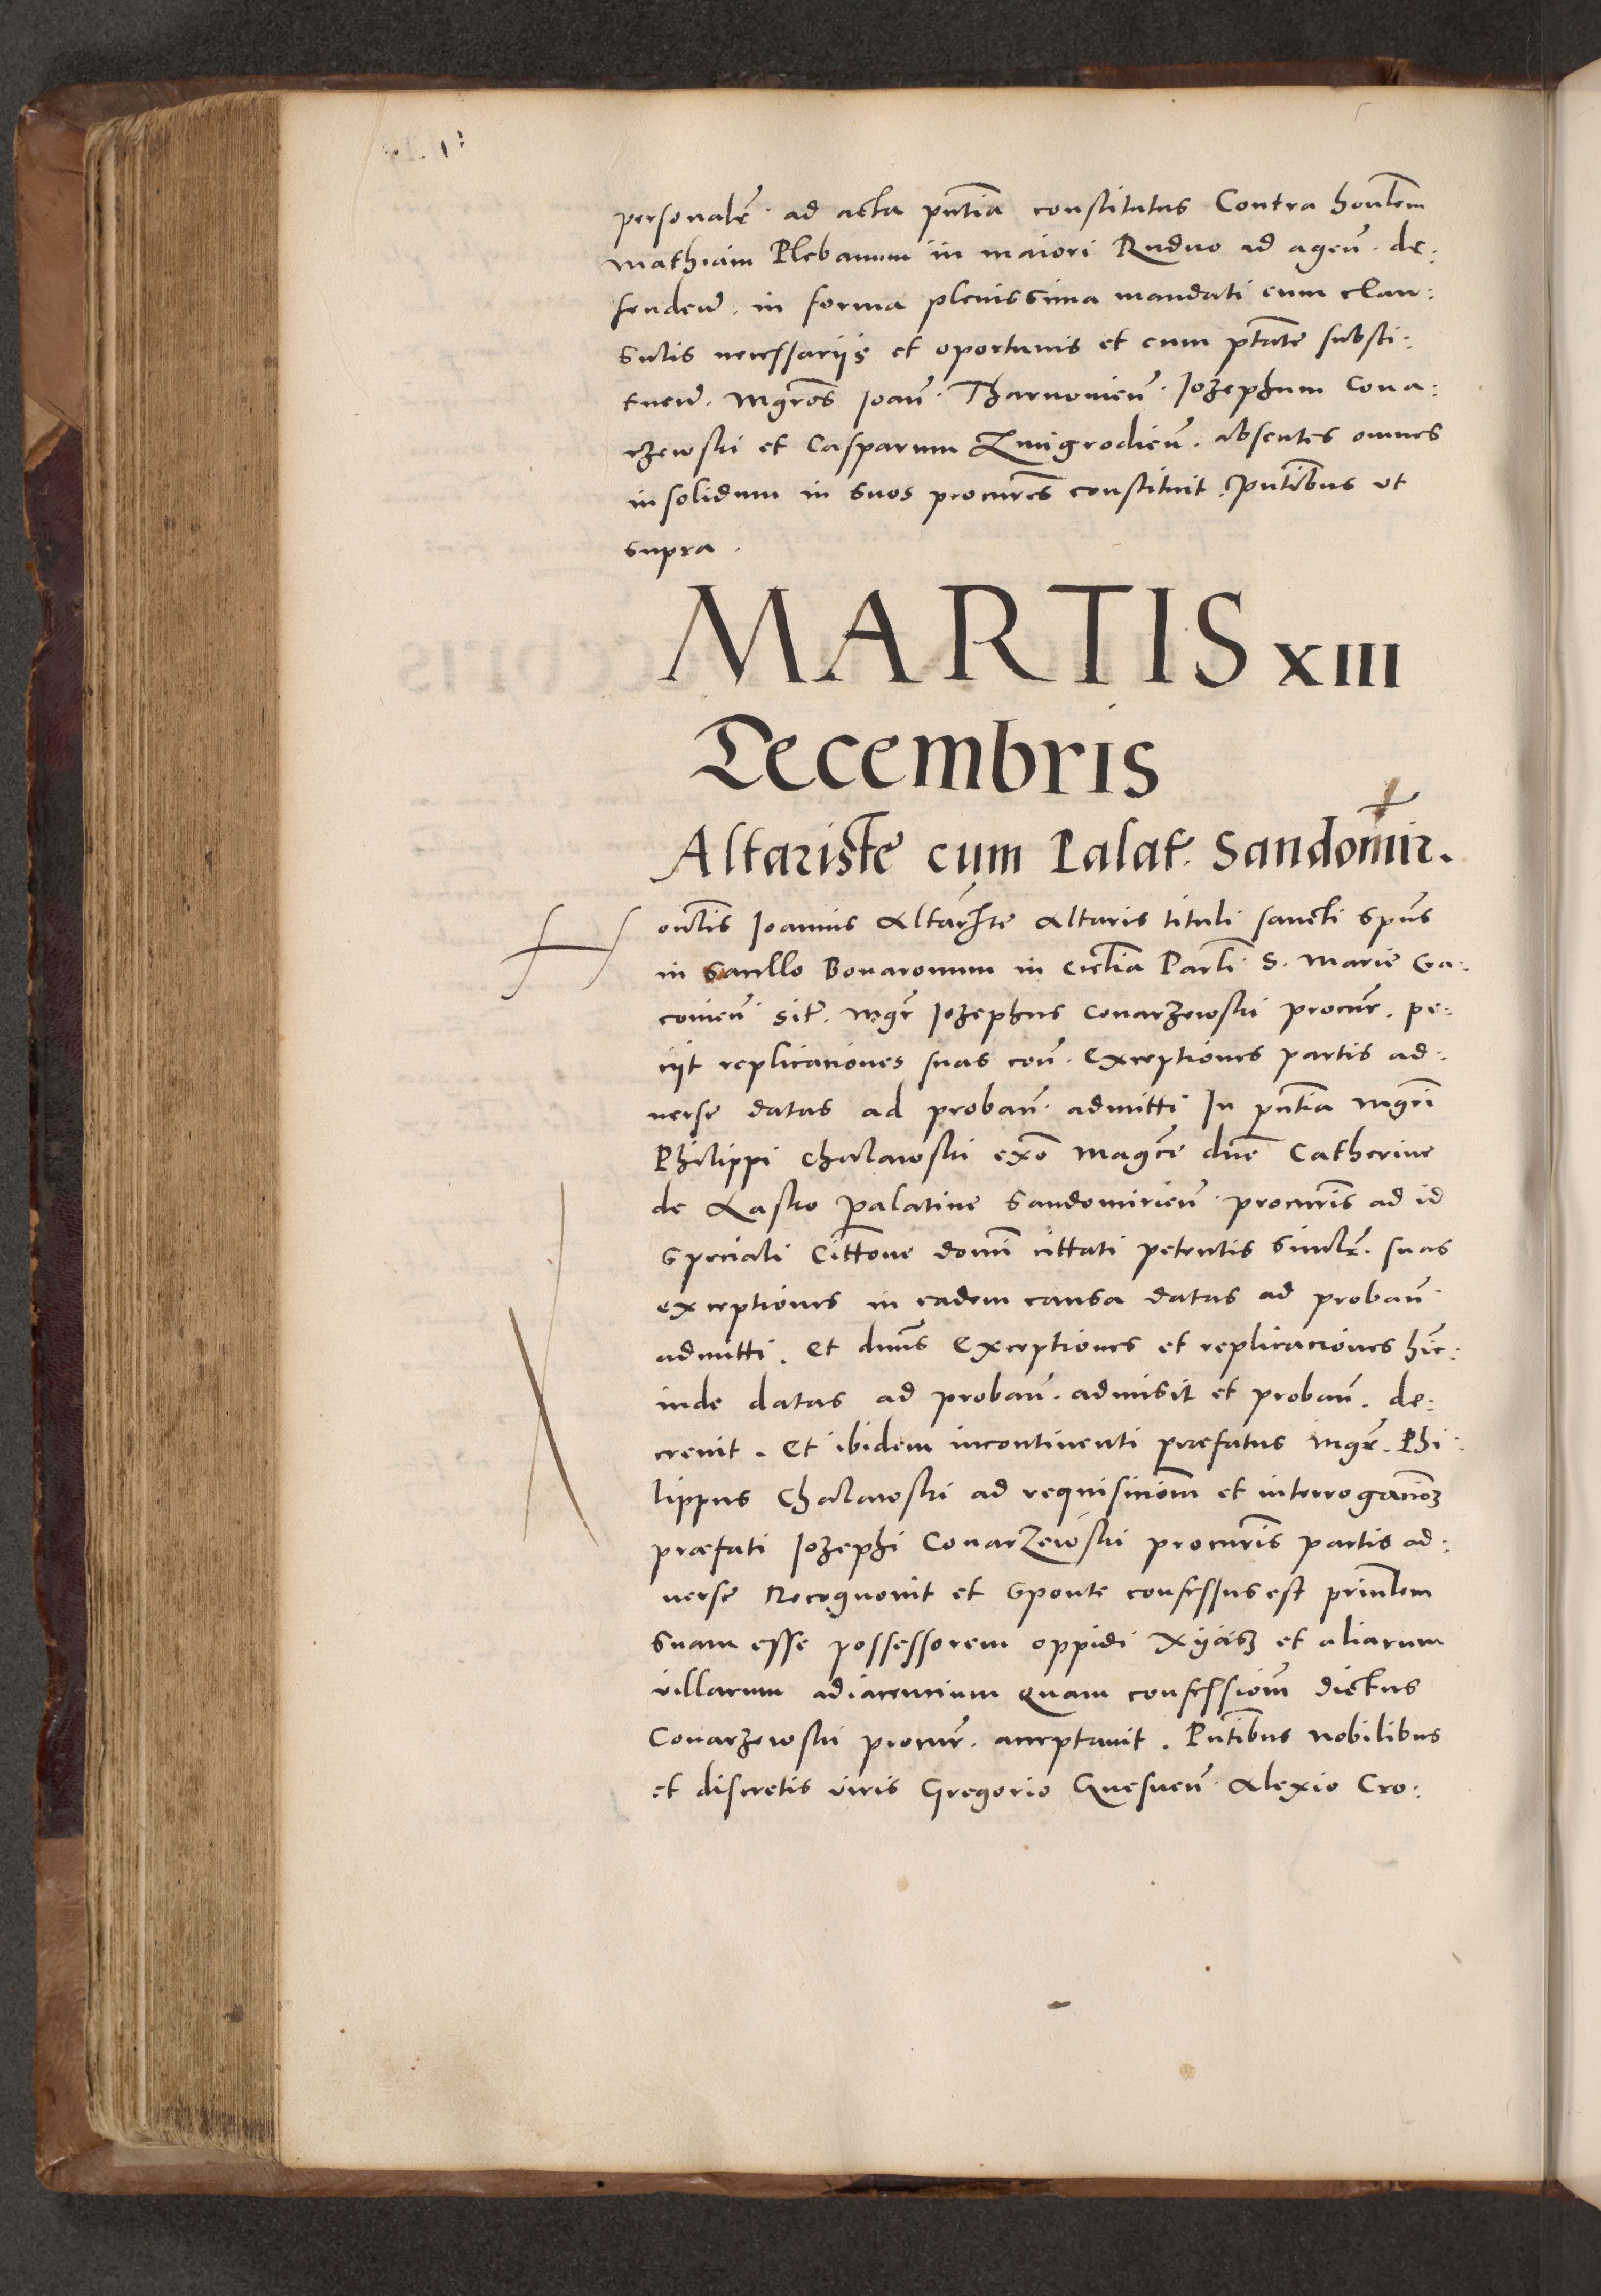 personalr̃ · ad acta pñtia constitutus Contra honlem̃
Mathiam Plebanum in maiori Rudno ad ageñ · de:
fendeñ · in forma plenissima mandati cum clau:
sulis necessariis et oportunis et cum ptãte substi:
tueñ · Mgros̃ Joañ · Tharnovieñ · Jozephum Cona:
rzewski et Casparum Zmigrodieñ · absentes omnes
insolidum in suos procures̃ constituit · Pñtibus vt
supra ·
MARTIS XIII
Decembris
Altariste cum Palat. Sandomir.
Honlis̃ Joannis Altariste Altaris tituli sancti Spũs
in Sacello Bonaronum in Ecclia Parli S. Marie
sit̃ · Mgr̃ Jozephus Conarzewski procur̃ · pe:
ciit replicationes suas coñ · Exceptiones partis ad:
uerse datas ad probañ · admitti In pñtia Mgri
Philippi Chalawski exõ Magce dñe Catherine
de Lasko Palatine Sandomirieñ · procuris̃ ad id
Speciali Cittõne domi cittati petentis simlr̃ · suas
exceptiones in eadem causa datas ad probañ ·
admitti · Et dnũs Exceptiones et replicaciones hic:
inde datas ad probañ · admisit et probañ · de:
creuit · Et ibidem incontinenti præfatus Mgr̃ · Phi:
lippus Chalawski ad requisiciom̃ et interrogacioȝ
præfati Jozephi Conarzewski procuris̃ partis ad:
uerse Recognouit et Sponte confessus est prinlem̃
Suam esse possessorem oppidi Xyasz et aliarum
villarum adiacencium Quam confessiom̃ dictus
Conarzewski procur̃ · acceptauit · Pñtibus nobilibus
et discretis viris Gregorio Gnesneñ · Alexio Cro: